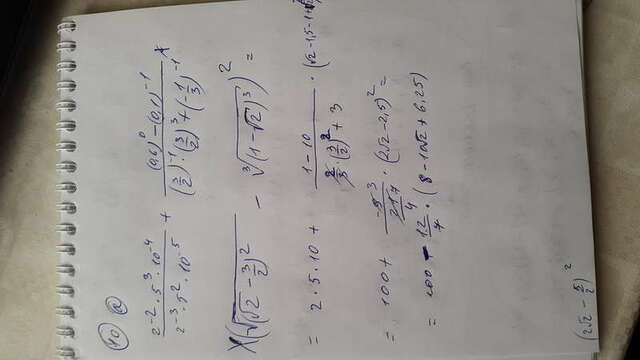 10 a
\frac{2^{-2} \cdot 5^3 \cdot 10^{-4}}{2^{-3} \cdot 5^2 \cdot 10^{-5}} + \frac{(0,6)^0 - (0,1)^{-1}}{(\frac{3}{2})^{-1} \cdot (\frac{3}{2})^3 + (-\frac{1}{3})^{-1}} ×
× (-\sqrt{(\sqrt{2} - \frac{3}{2})^2} - \sqrt[3]{(1 - \sqrt{2})^3})^2 =
= 2 \cdot 5 \cdot 10 + \frac{1 - 10}{\frac{2}{3} \cdot (\frac{3}{2})^2 + 3} \cdot (\sqrt{2} - 1,5 - 1 + \sqrt{2}
= 100 + \frac{-9 3}{\frac{21 7}{4}} \cdot (2\sqrt{2} - 2,5)^2 =
= 100 - \frac{12}{7} \cdot (8 - 10\sqrt{2} + 6,25)
(2\sqrt{2} - \frac{5}{2})^2